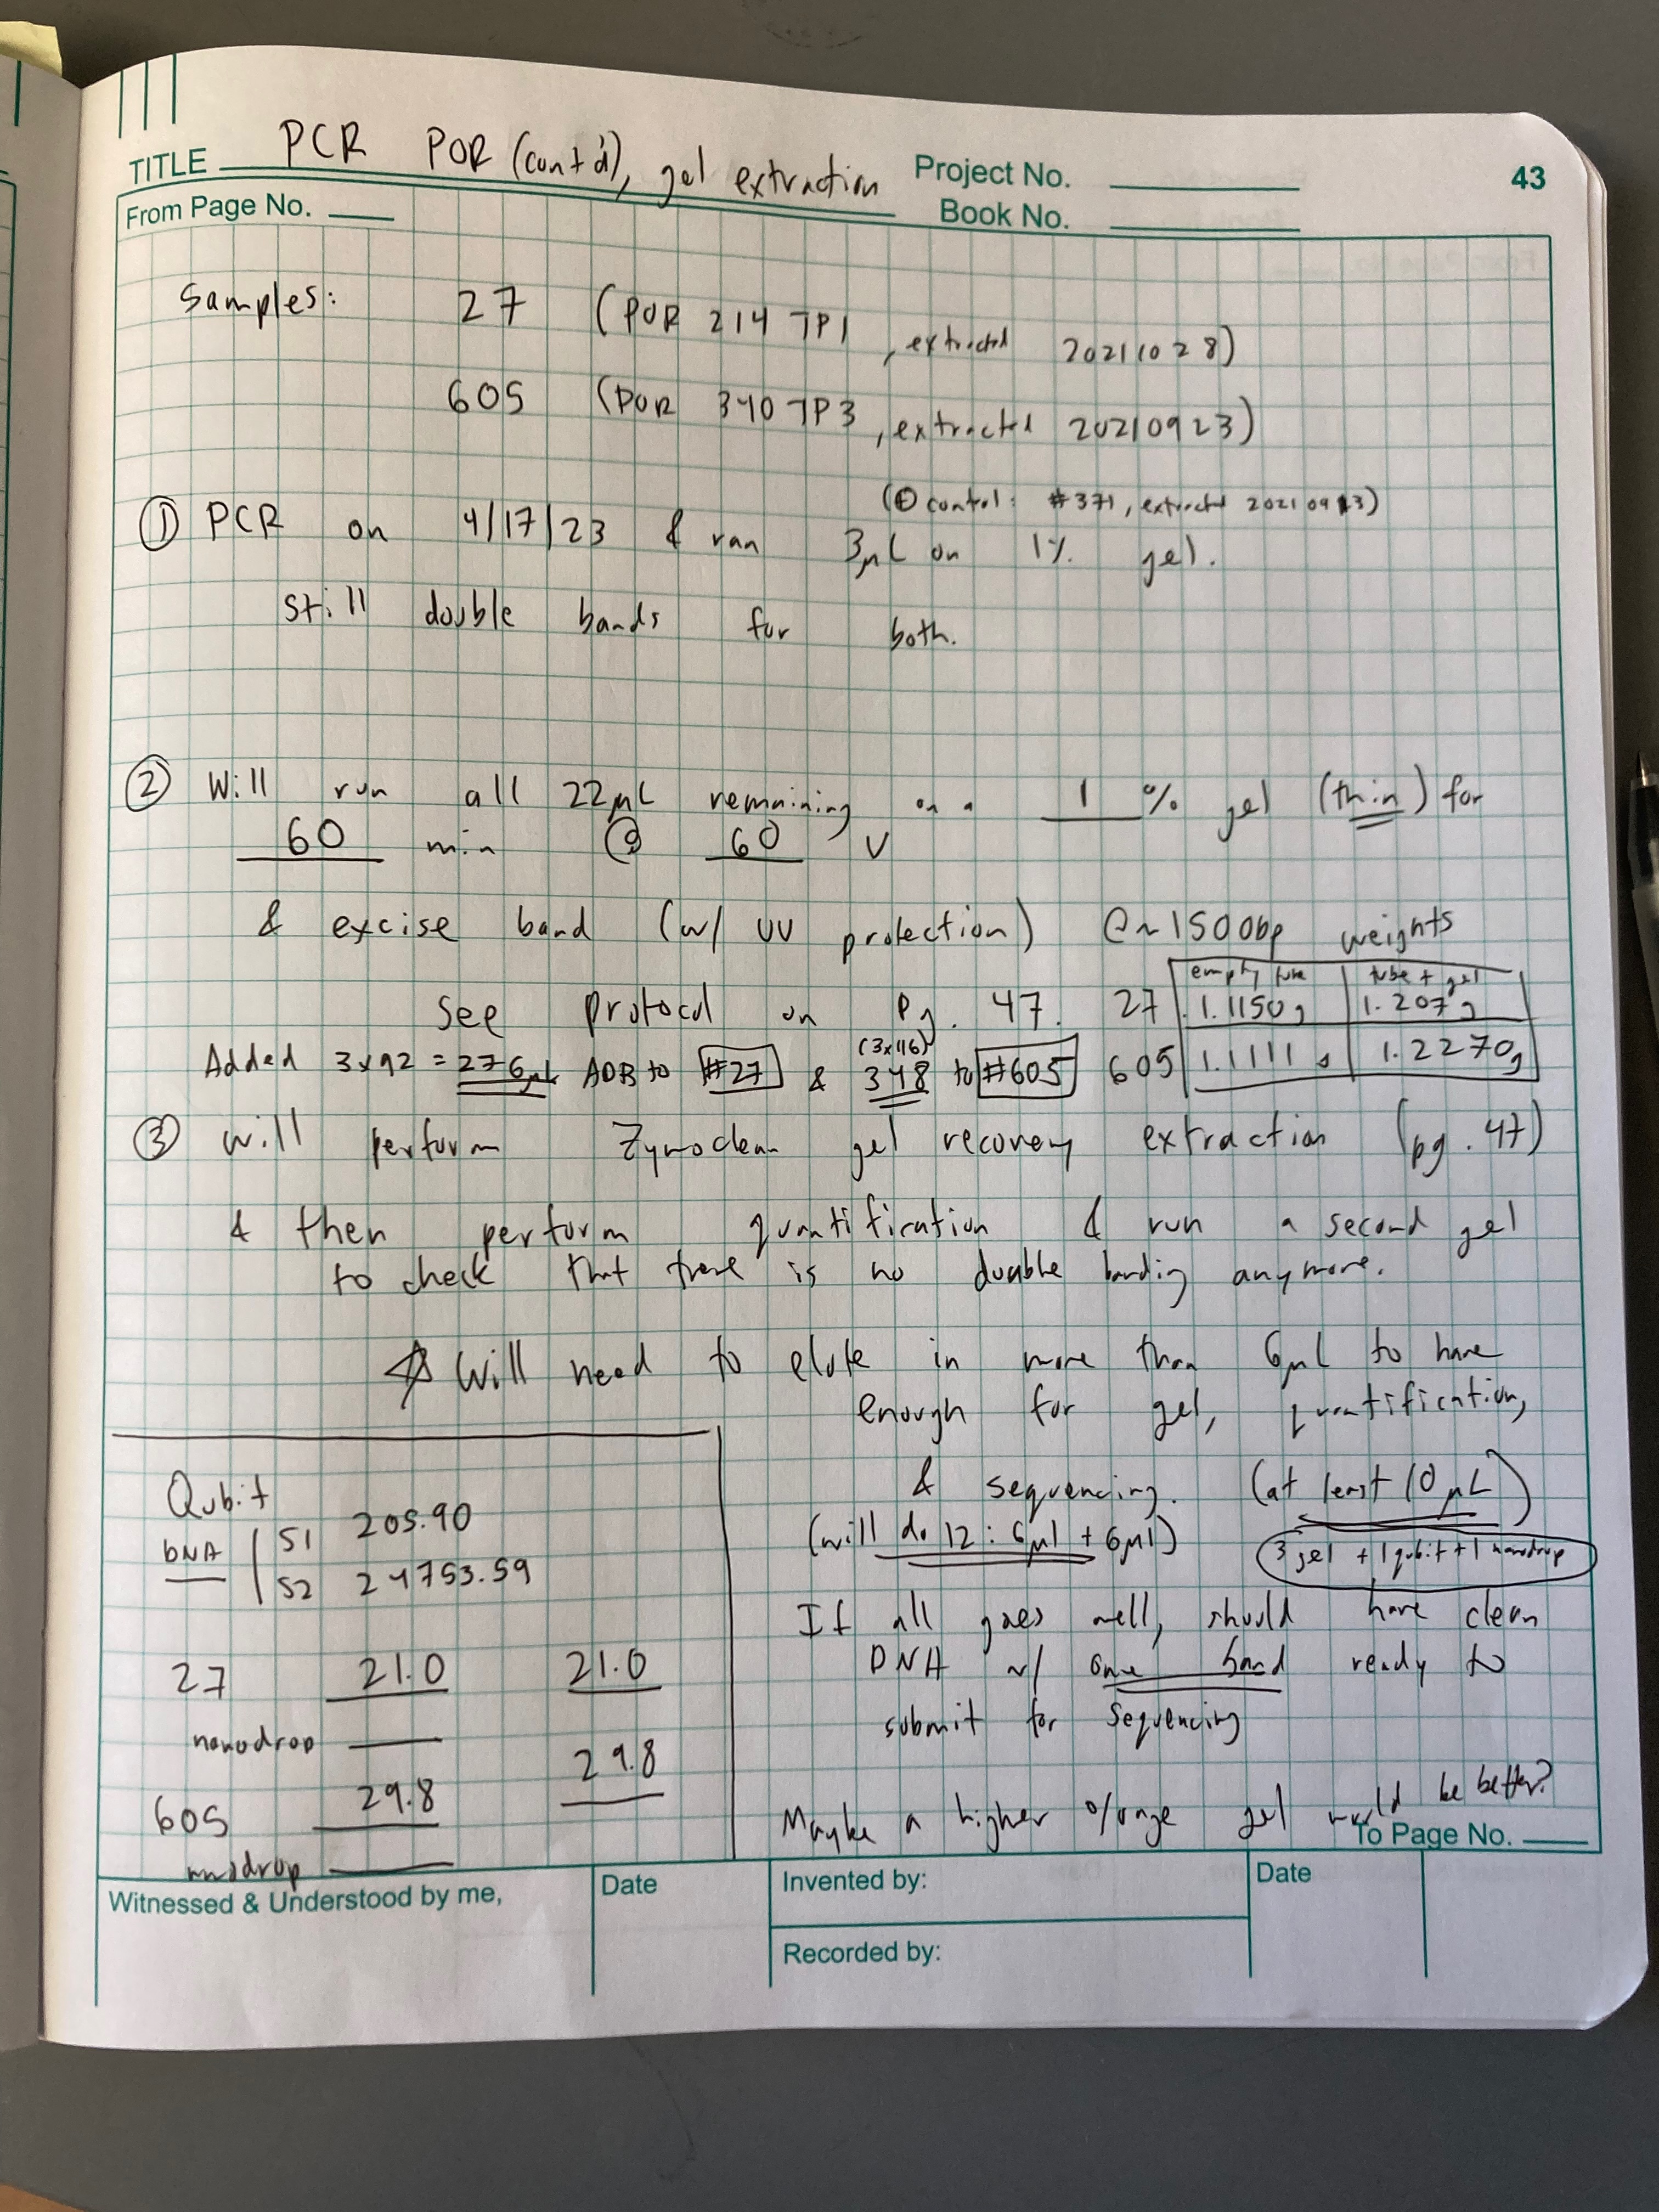 TITLE PCR POR (cont'd), gel extraction
Project No.
43
From Page No.
Book No.
Samples: 27 (POR 214 TP1, extracted 20211028)
605 (POR 340 TP3, extracted 20210923)
(⊕ control: #371, extracted 20210913)
① PCR on 4/17/23 & ran 3µL on 1% gel.
Still double bands for both.
② Will run all 22µL remaining on a 1 % gel (thin) for
60 min @ 60 V
& excise band (w/ UV protection) @~1500bp
weights
empty tube tube + gel
See protocol on Pg. 47.
27 1.1150g 1.207g
(3x116)
Added 3x92 = 276µL ADB to #27 & 348 to #605
605 1.1111g 1.2270g
③ will perform Zymoclean gel recovery extraction (pg. 47)
& then perform quantification & run a second gel
to check that there is no double banding anymore.
☆ Will need to elute in more than 6µL to have
enough for gel, quantification,
& sequencing. (at least 10 µL)
(will do 12: 6µl + 6µl)
3 gel + 1 qubit + 1 nanodrop
If all goes well, should have clean
DNA w/ one band ready to
submit for sequencing
Maybe a higher %age gel would be better?
Qubit
DNA S1 205.90
S2 24753.59
27 21.0 21.0
nanodrop
605 29.8 29.8
nanodrop
To Page No.
Witnessed & Understood by me,
Date
Invented by:
Date
Recorded by: